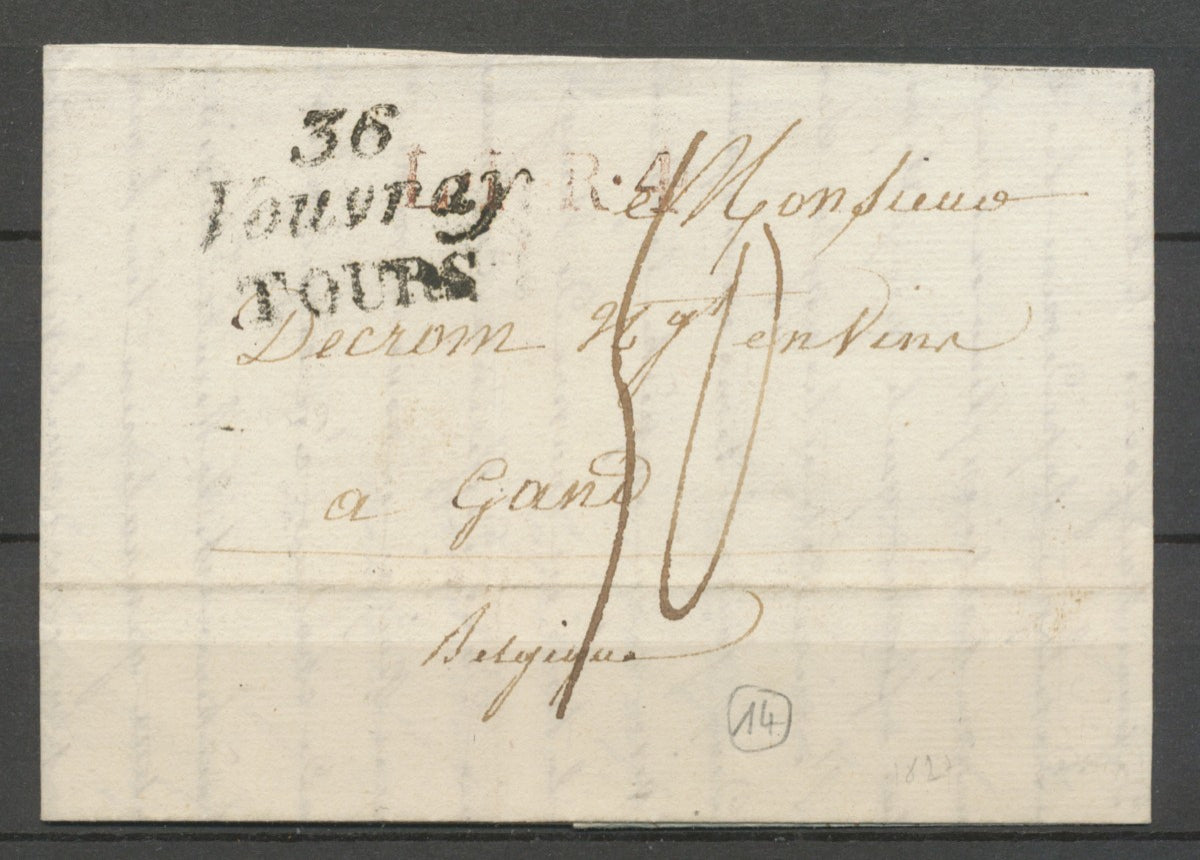 36
Vouvray
TOURS
L.F.R.4
Monsieur
Decrom Ngt en Vins
a Gand
Belgique
50
14